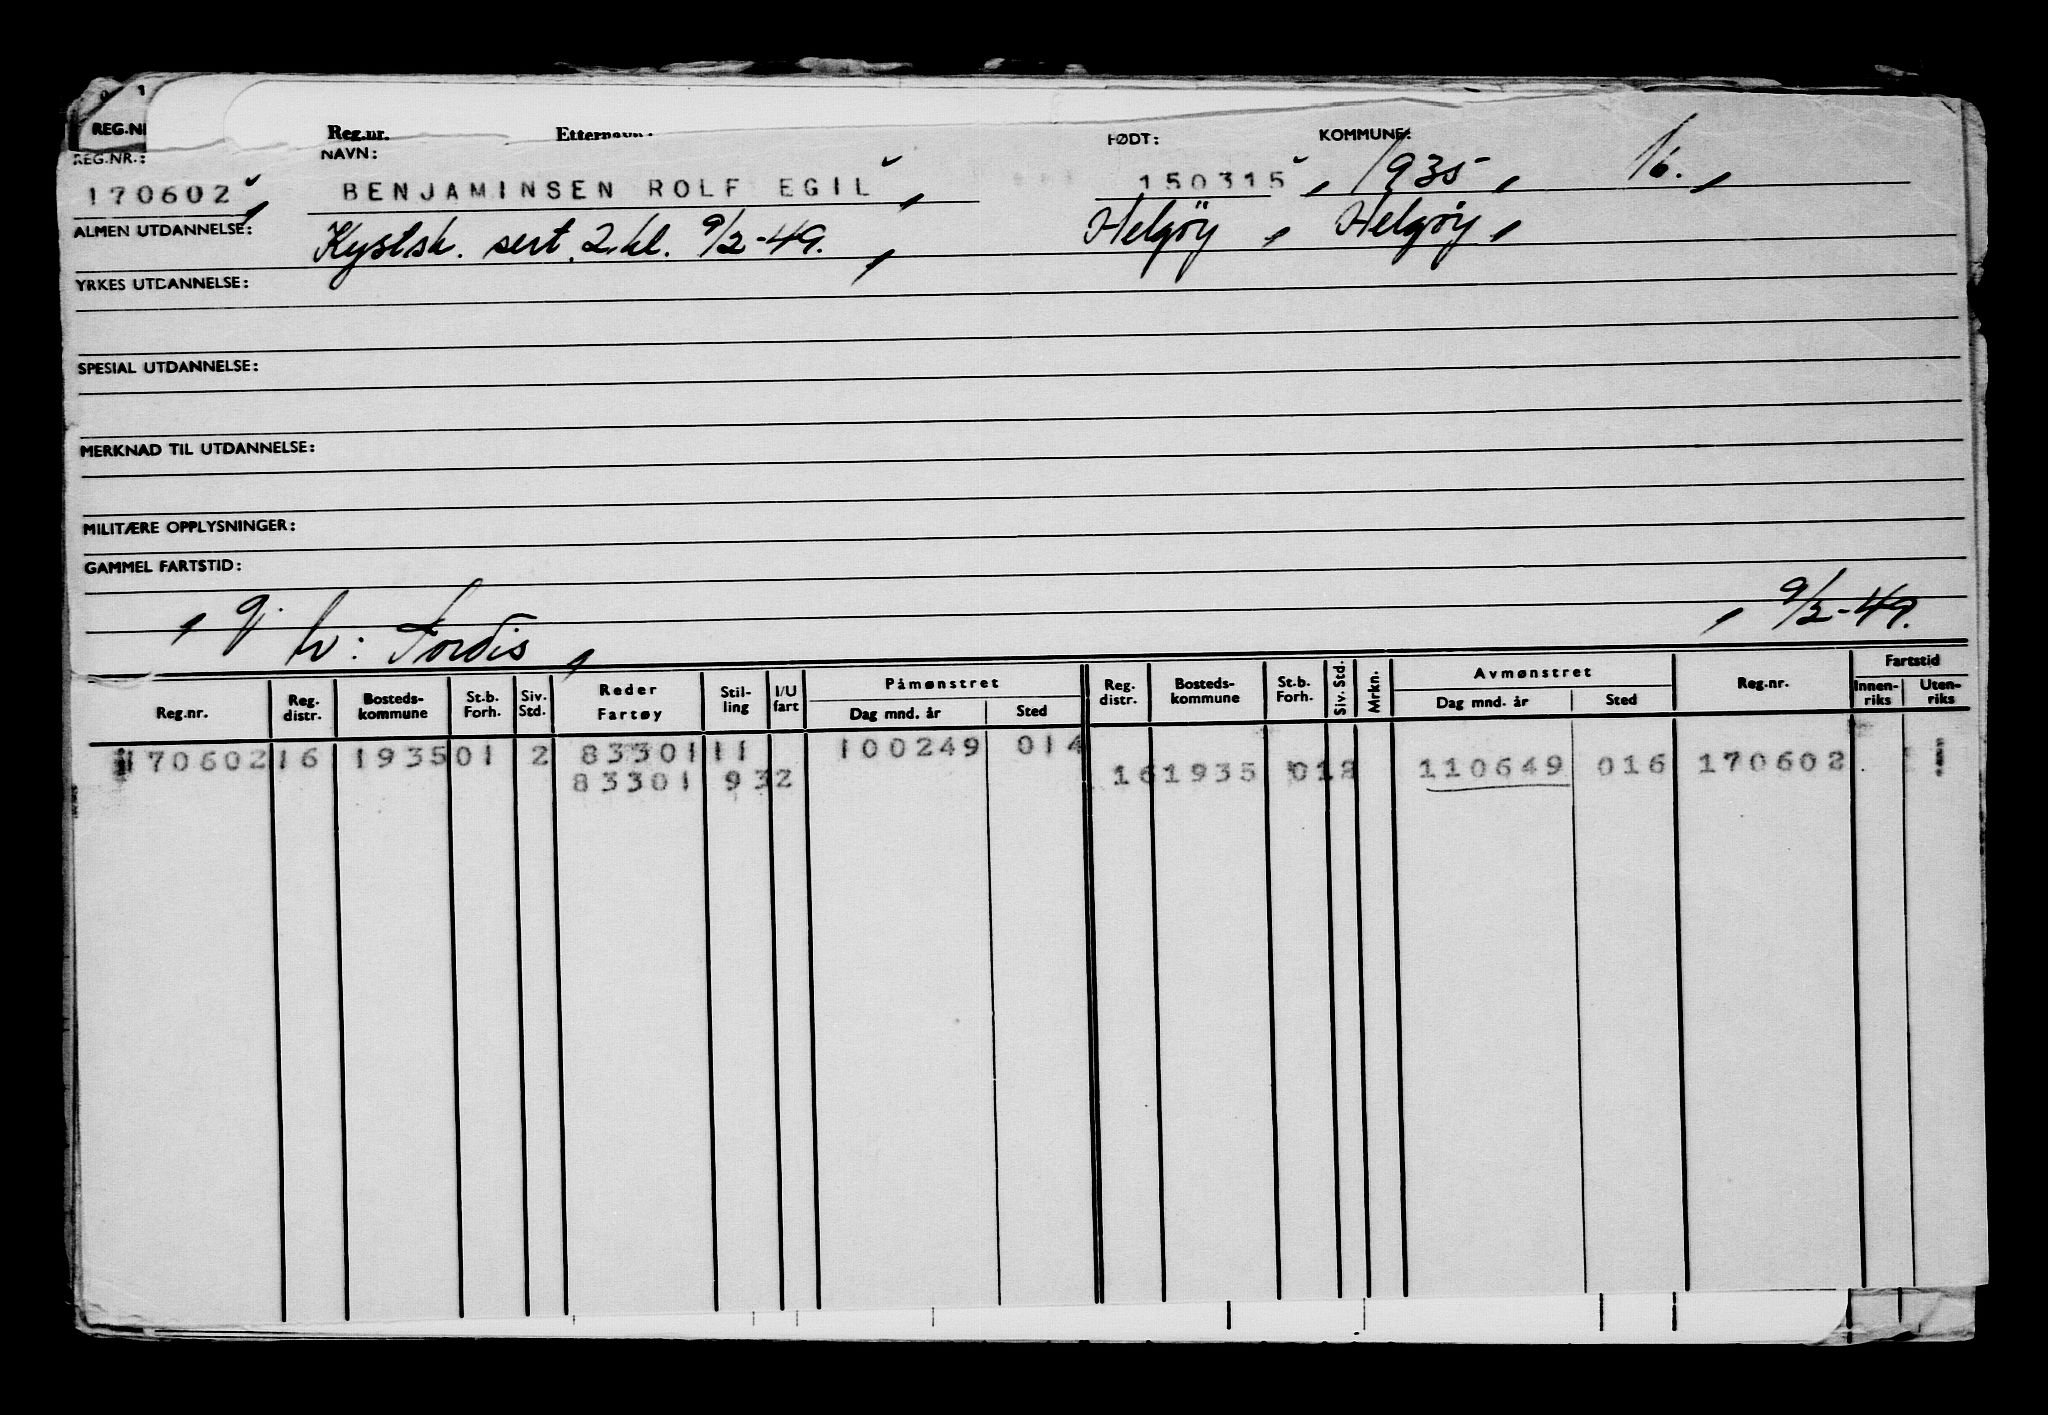 REG.NR
Reg.nr. Etternavn:
REG.NR.: NAVN: FØDT: KOMMUNE:
170602 BENJAMINSEN ROLF EGIL 150315, 1935, 16.,
ALMEN UTDANNELSE: Kystsk. sert. 2.kl. 9/2-49., Helgöy, Helgøy,
YRKES UTDANNELSE:
SPESIAL UTDANNELSE:
MERKNAD TIL UTDANNELSE:
MILITÆRE OPPLYSNINGER:
GAMMEL FARTSTID:
, g. , 9/2-49.
hv: Tordis,
Reg.nr. Reg. distr. Bosteds-kommune St.b. Forh. Siv. Std. Reder Fartøy Stil-ling I/U fart Påmønstret Dag mnd. år Sted Reg. distr. Bosteds-kommune St.b. Forh. Siv. Std. Mrkn. Avmønstret Dag mnd. år Sted Reg.nr. Fartstid Innen-riks Uten-riks
170602 16 1935 01 2 83301 11 100249 014
83301 932 16 1935 01 2 110649 016 170602